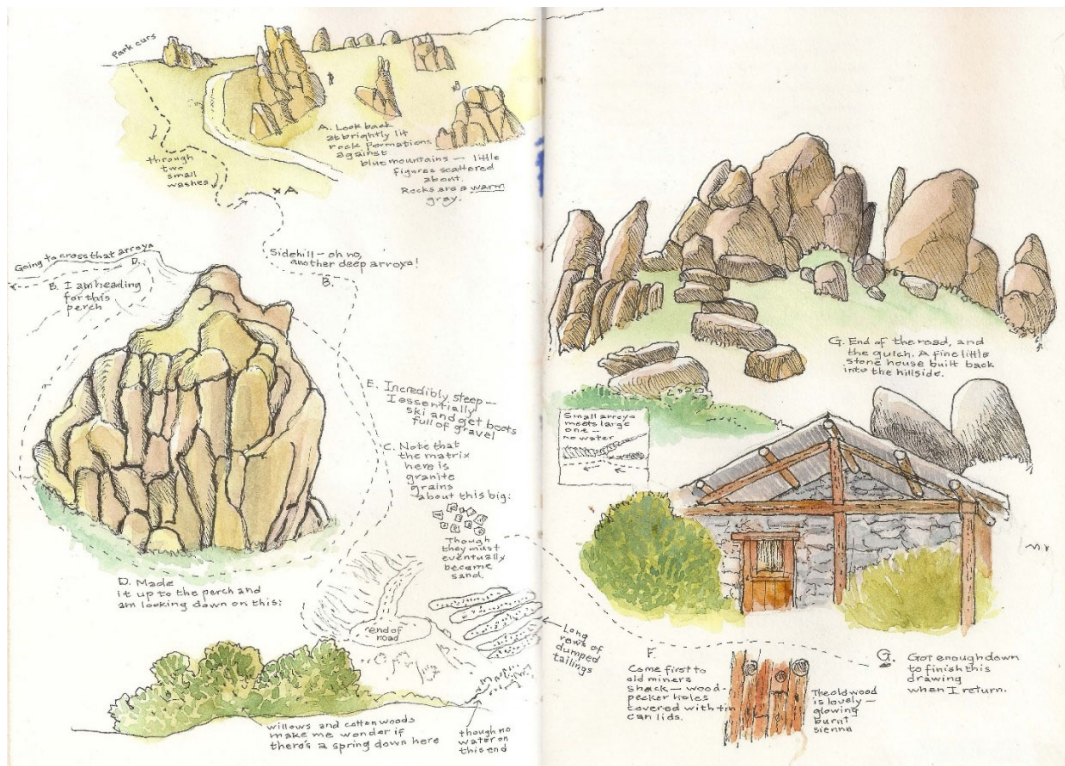 Park curs
through
two
small
washes
A. Look back
at brightly lit
rock formations
against
blue mountains — little
figures scattered
about.
Rocks are a warm
gray.
x A
Sidehill — oh no,
another deep arroyo!
B.
Going to cross that arroyo
D.
B. I am heading
for this
perch
E. Incredibly steep —
I essentially
ski and get boots
full of gravel
C. Note that
the matrix
here is
granite
grains
about this big:
Though
they must
eventually
become
sand.
D. Made
it up to the perch and
am looking down on this:
end of
road
Long
rows of
dumped
tailings
willows and cottonwoods
make me wonder if
there's a spring down here
though no
water on
this end
G. End of the road, and
the gulch. A fine little
stone house built back
into the hillside.
Small arroyo
meets large
one —
no water
F.
Come first to
old miners
shack — wood-
pecker holes
covered with tin
can lids.
The old wood
is lovely —
glowing
burnt
sienna
G. Got enough down
to finish this
drawing
when I return.